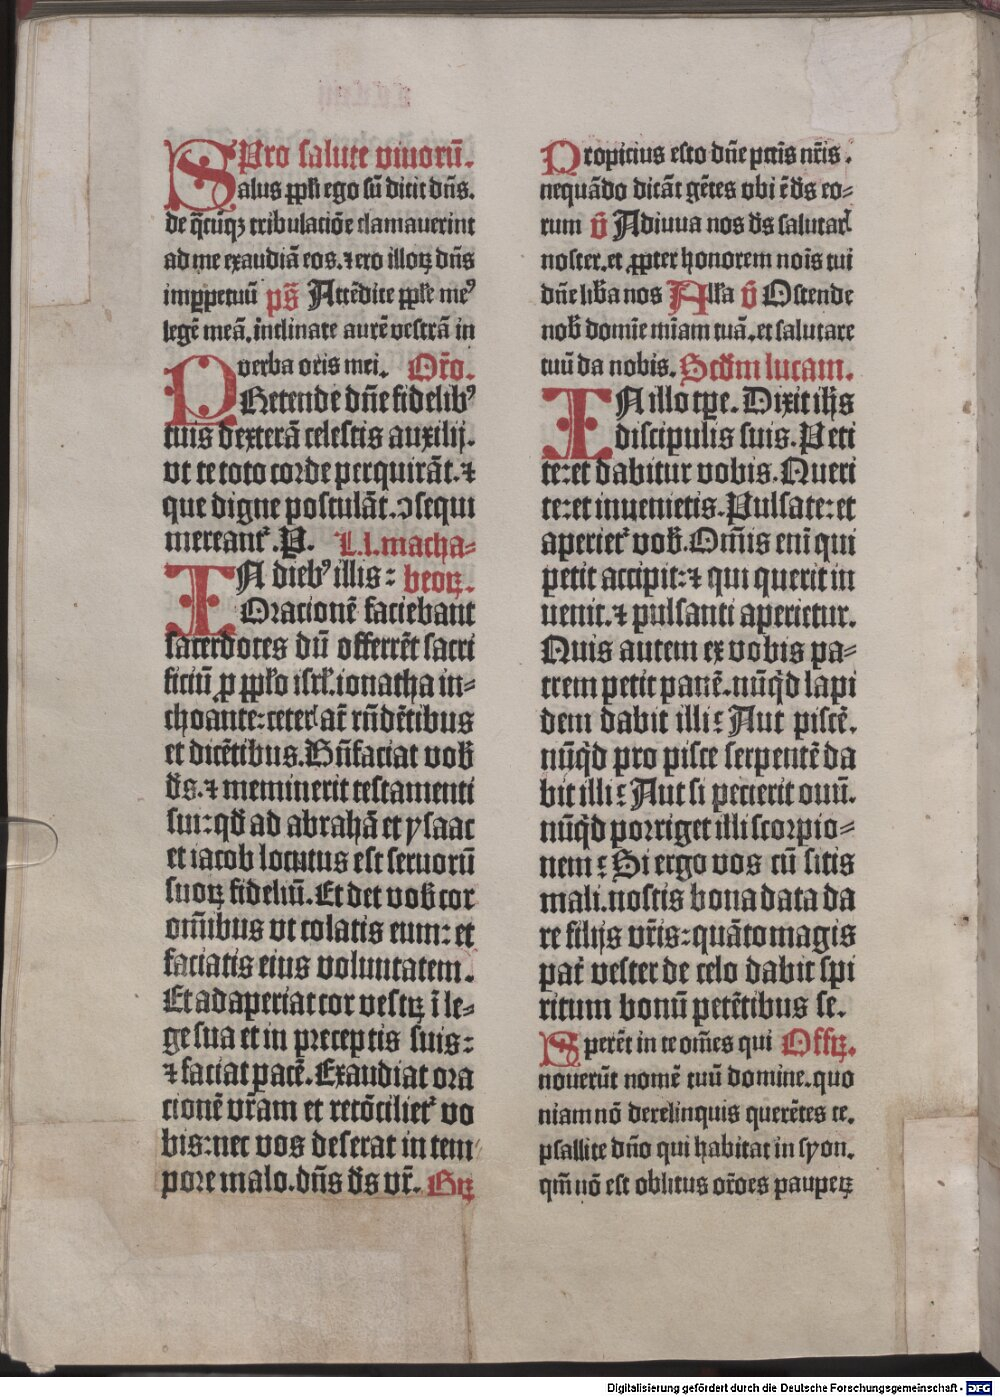 Pro salute viuorũ.
Salus ppli ego sũ dicit dñs.
de q̃cũqꝫ tribulatiõe clamauerint
ad me exaudiã eos. ⁊ ero illoꝝ dñs
imꝑpetuũ ps̃ Attẽdite pple meꝰ
legẽ meã. inclinate aurẽ vestrã in
verba oris mei. Or̃o.
PRetende dñe fidelibꝰ
tuis dexterã celestis auxilij.
vt te toto corde perquirãt. ⁊
que digne postulãt. ɔsequi
mereant᷑. P. L. i. macha⸗
IN diebꝰ illis: beoꝝ.
Orationẽ faciebant
sacerdotes dũ offerrẽt sacri
ficiũ ꝓ pplo isrl̃. ionatha in⸗
choante: ceteri aũt rñdẽtibus
et dicẽtibus. Bñfaciat vob̃
ds̃. ⁊ meminerit testamenti
sui: qd̃ ad abrahã et ysaac
et iacob locutus est seruorũ
suoꝝ fideliũ. Et det vob̃ cor
om̃ibus vt colatis eum: et
faciatis eius voluntatem.
Et adaperiat cor vestꝝ ĩ le⸗
ge sua et in preceptis suis:
⁊ faciat pacẽ. Exaudiat ora
tionẽ vr̃am et recõciliet᷑ vo
bis: nec vos deserat in tem
pore malo. dñs ds̃ vr̃. Gꝝ
Propicius esto dñe pctĩs nr̃is.
nequãdo dicãt gẽtes vbi ẽ ds̃ eo⸗
rum ṽ Adiuua nos ds̃ salutaris
noster. et ꝓpter honorem nois̃ tui
dñe lib̃a nos Alla ṽ Ostende
nob̃ domĩe mĩam tuã. et salutare
tuũ da nobis. Scd̃m lucam.
IN illo tpe. Dixit ihs̃
discipulis suis. Peti
te: et dabitur vobis. Queri
te: et inuenietis. Pulsate: et
aperiet᷑ vob̃. Om̃is eni qui
petit accipit: ⁊ qui querit in
uenit. ⁊ pulsanti aperietur.
Quis autem ex vobis pa⸗
trem petit panẽ. nũqd̃ lapi
dem dabit illi? Aut piscẽ.
nũqd̃ pro pisce serpentẽ da
bit illi? Aut si pecierit ouũ.
nũqd̃ porriget illi scorpio⸗
nem? Si ergo vos cũ sitis
mali. nostis bona data da
re filijs vr̃is: quãto magis
pat᷑ vester de celo dabit spi
ritum bonũ petẽtibus se.
Sperẽt in te om̃es qui Offꝝ.
nouerũt nomẽ tuũ domine. quo
niam nõ derelinquis querẽtes te.
psallite dño qui habitat in syon.
qm̃ nõ est oblitus or̃oes paupeꝝ
Digitalisierung gefördert durch die Deutsche Forschungsgemeinschaft - DFG